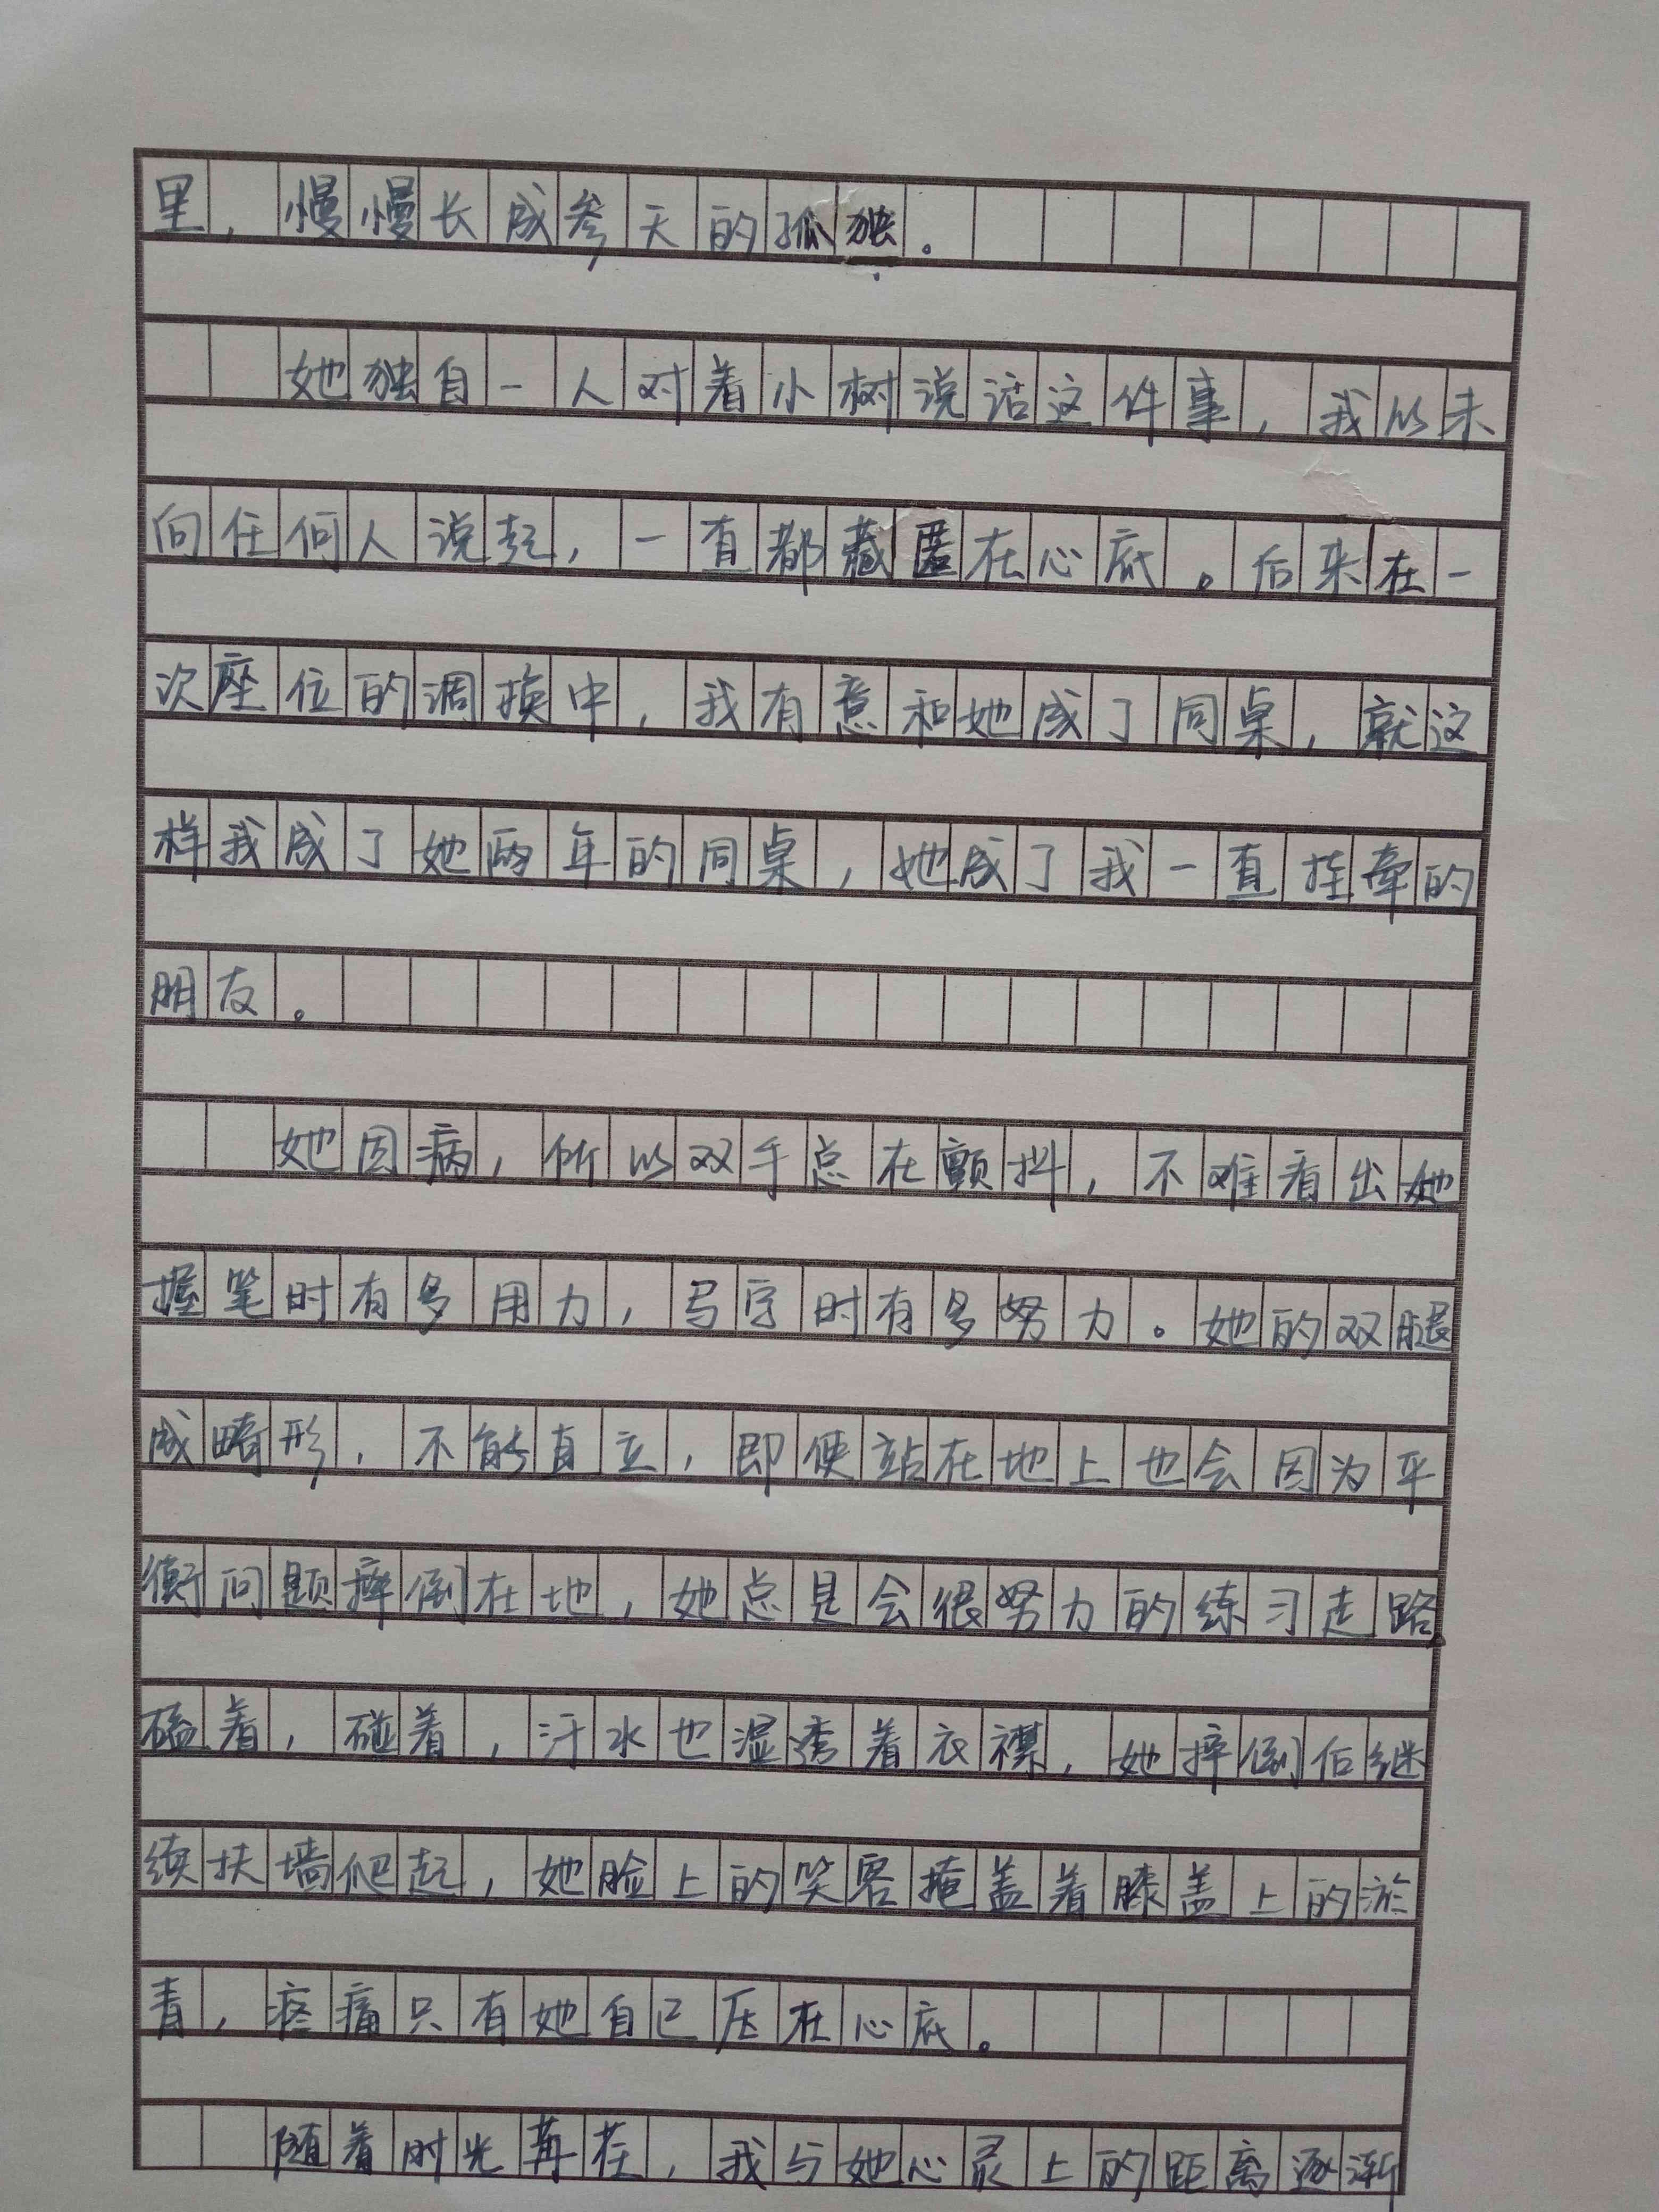 里，慢慢长成参天的孤独。
她独自一人对着小树说话这件事，我从未
向任何人说起，一直都藏匿在心底。后来在一
次座位的调换中，我有意和她成了同桌，就这
样我成了她两年的同桌，她成了我一直挂牵的
朋友。
她因病，所以双手总在颤抖，不难看出她
握笔时有多用力，写字时有多努力。她的双腿
成畸形，不能直立，即使站在地上也会因为平
衡问题摔倒在地，她总是会很努力的练习走路，
磕着，碰着，汗水也湿透着衣襟，她摔倒后继
续扶墙爬起，她脸上的笑容掩盖着膝盖上的淤
青，疼痛只有她自己压在心底。
随着时光荏苒，我与她心灵上的距离逐渐